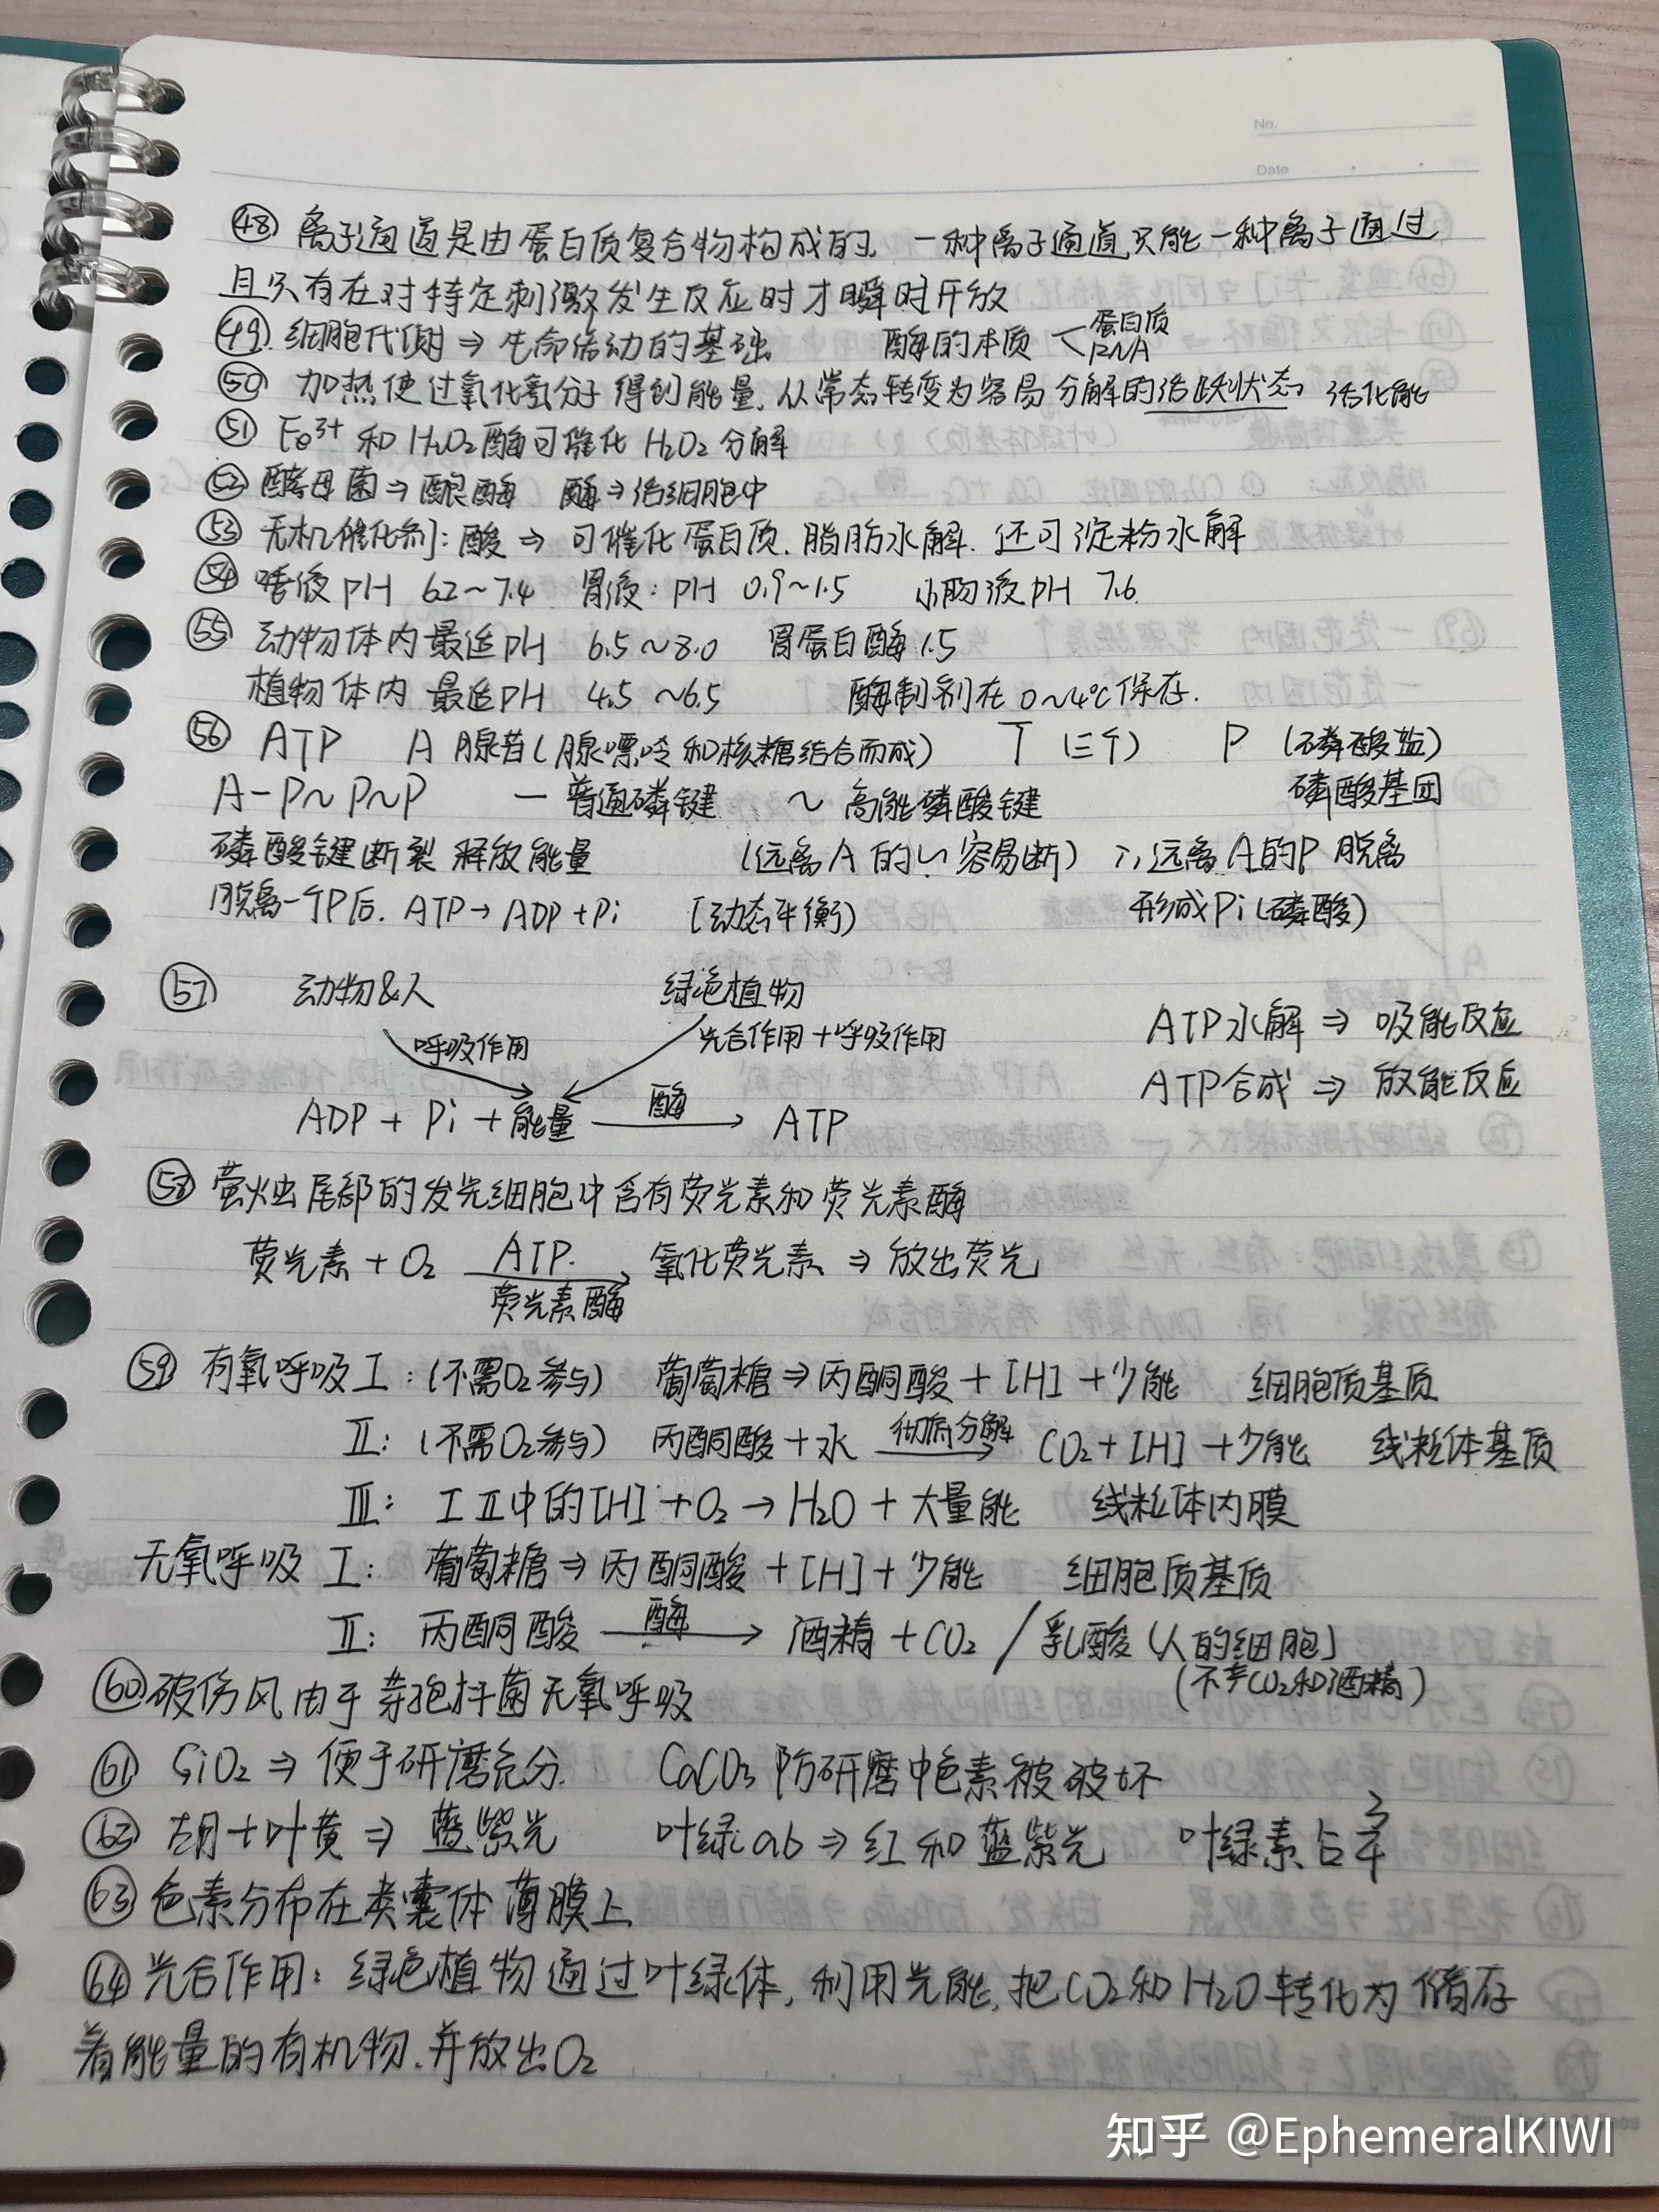 No.
Date
㊽ 离子通道是由蛋白质复合物构成的. 一种离子通道只能一种离子通过
且只有在对特定刺激发生反应时才瞬时开放
㊾ 细胞代谢 ⇒ 生命活动的基础. 酶的本质 < 蛋白质 RNA
㊿ 加热使过氧化氢分子得到能量, 从常态转变为容易分解的活跃状态 活化能
51 Fe³⁺ 和 H₂O₂酶可催化 H₂O₂ 分解
52 酵母菌 ⇒ 酿酶 酶 ⇒ 活细胞中
53 无机催化剂: 酸 ⇒ 可催化蛋白质. 脂肪水解. 还可淀粉水解
54 唾液 PH 6.2~7.4 胃液: PH 0.9~1.5 小肠液 PH 7.6
55 动物体内最适PH 6.5~8.0 胃蛋白酶 1.5
植物体内 最适PH 4.5~6.5 酶制剂在 0~4℃保存.
56 ATP A 腺苷(腺嘌呤和核糖结合而成) T (三个) P (磷酸盐)
A-P~P~P — 普通磷键 ~ 高能磷酸键 磷酸基团
磷酸键断裂 释放能量 (远离A的~容易断) ∴远离A的P脱离
脱离一个P后. ATP→ADP+Pi (动态平衡) 形成Pi(磷酸)
57 动物&人 绿色植物
呼吸作用 光合作用+呼吸作用 ATP水解 ⇒ 吸能反应
ATP合成 ⇒ 放能反应
ADP + Pi + 能量 酶→ ATP
58 萤火虫尾部的发光细胞中含有荧光素和荧光素酶
荧光素 + O₂ ATP. 荧光素酶→ 氧化荧光素 ⇒ 放出荧光
59 有氧呼吸 I: (不需O₂参与) 葡萄糖 ⇒ 丙酮酸 + [H] + 少能 细胞质基质
II: (不需O₂参与) 丙酮酸 + 水 彻底分解→ CO₂ + [H] + 少能 线粒体基质
III: I II中的[H] + O₂ → H₂O + 大量能 线粒体内膜
无氧呼吸 I: 葡萄糖 ⇒ 丙酮酸 + [H] + 少能 细胞质基质
II: 丙酮酸 酶→ 酒精 + CO₂ / 乳酸 (人的细胞)
(不产CO₂和酒精)
60 破伤风由于芽孢杆菌无氧呼吸
61 SiO₂ ⇒ 便于研磨充分. CaCO₃ 防研磨中色素被破坏
62 胡+叶黄 ⇒ 蓝紫光 叶绿ab ⇒ 红和蓝紫光 叶绿素占3/4
63 色素分布在类囊体薄膜上
64 光合作用: 绿色植物通过叶绿体, 利用光能, 把CO₂和H₂O转化为储存
着能量的有机物. 并放出O₂
知乎 @EphemeralKIWI